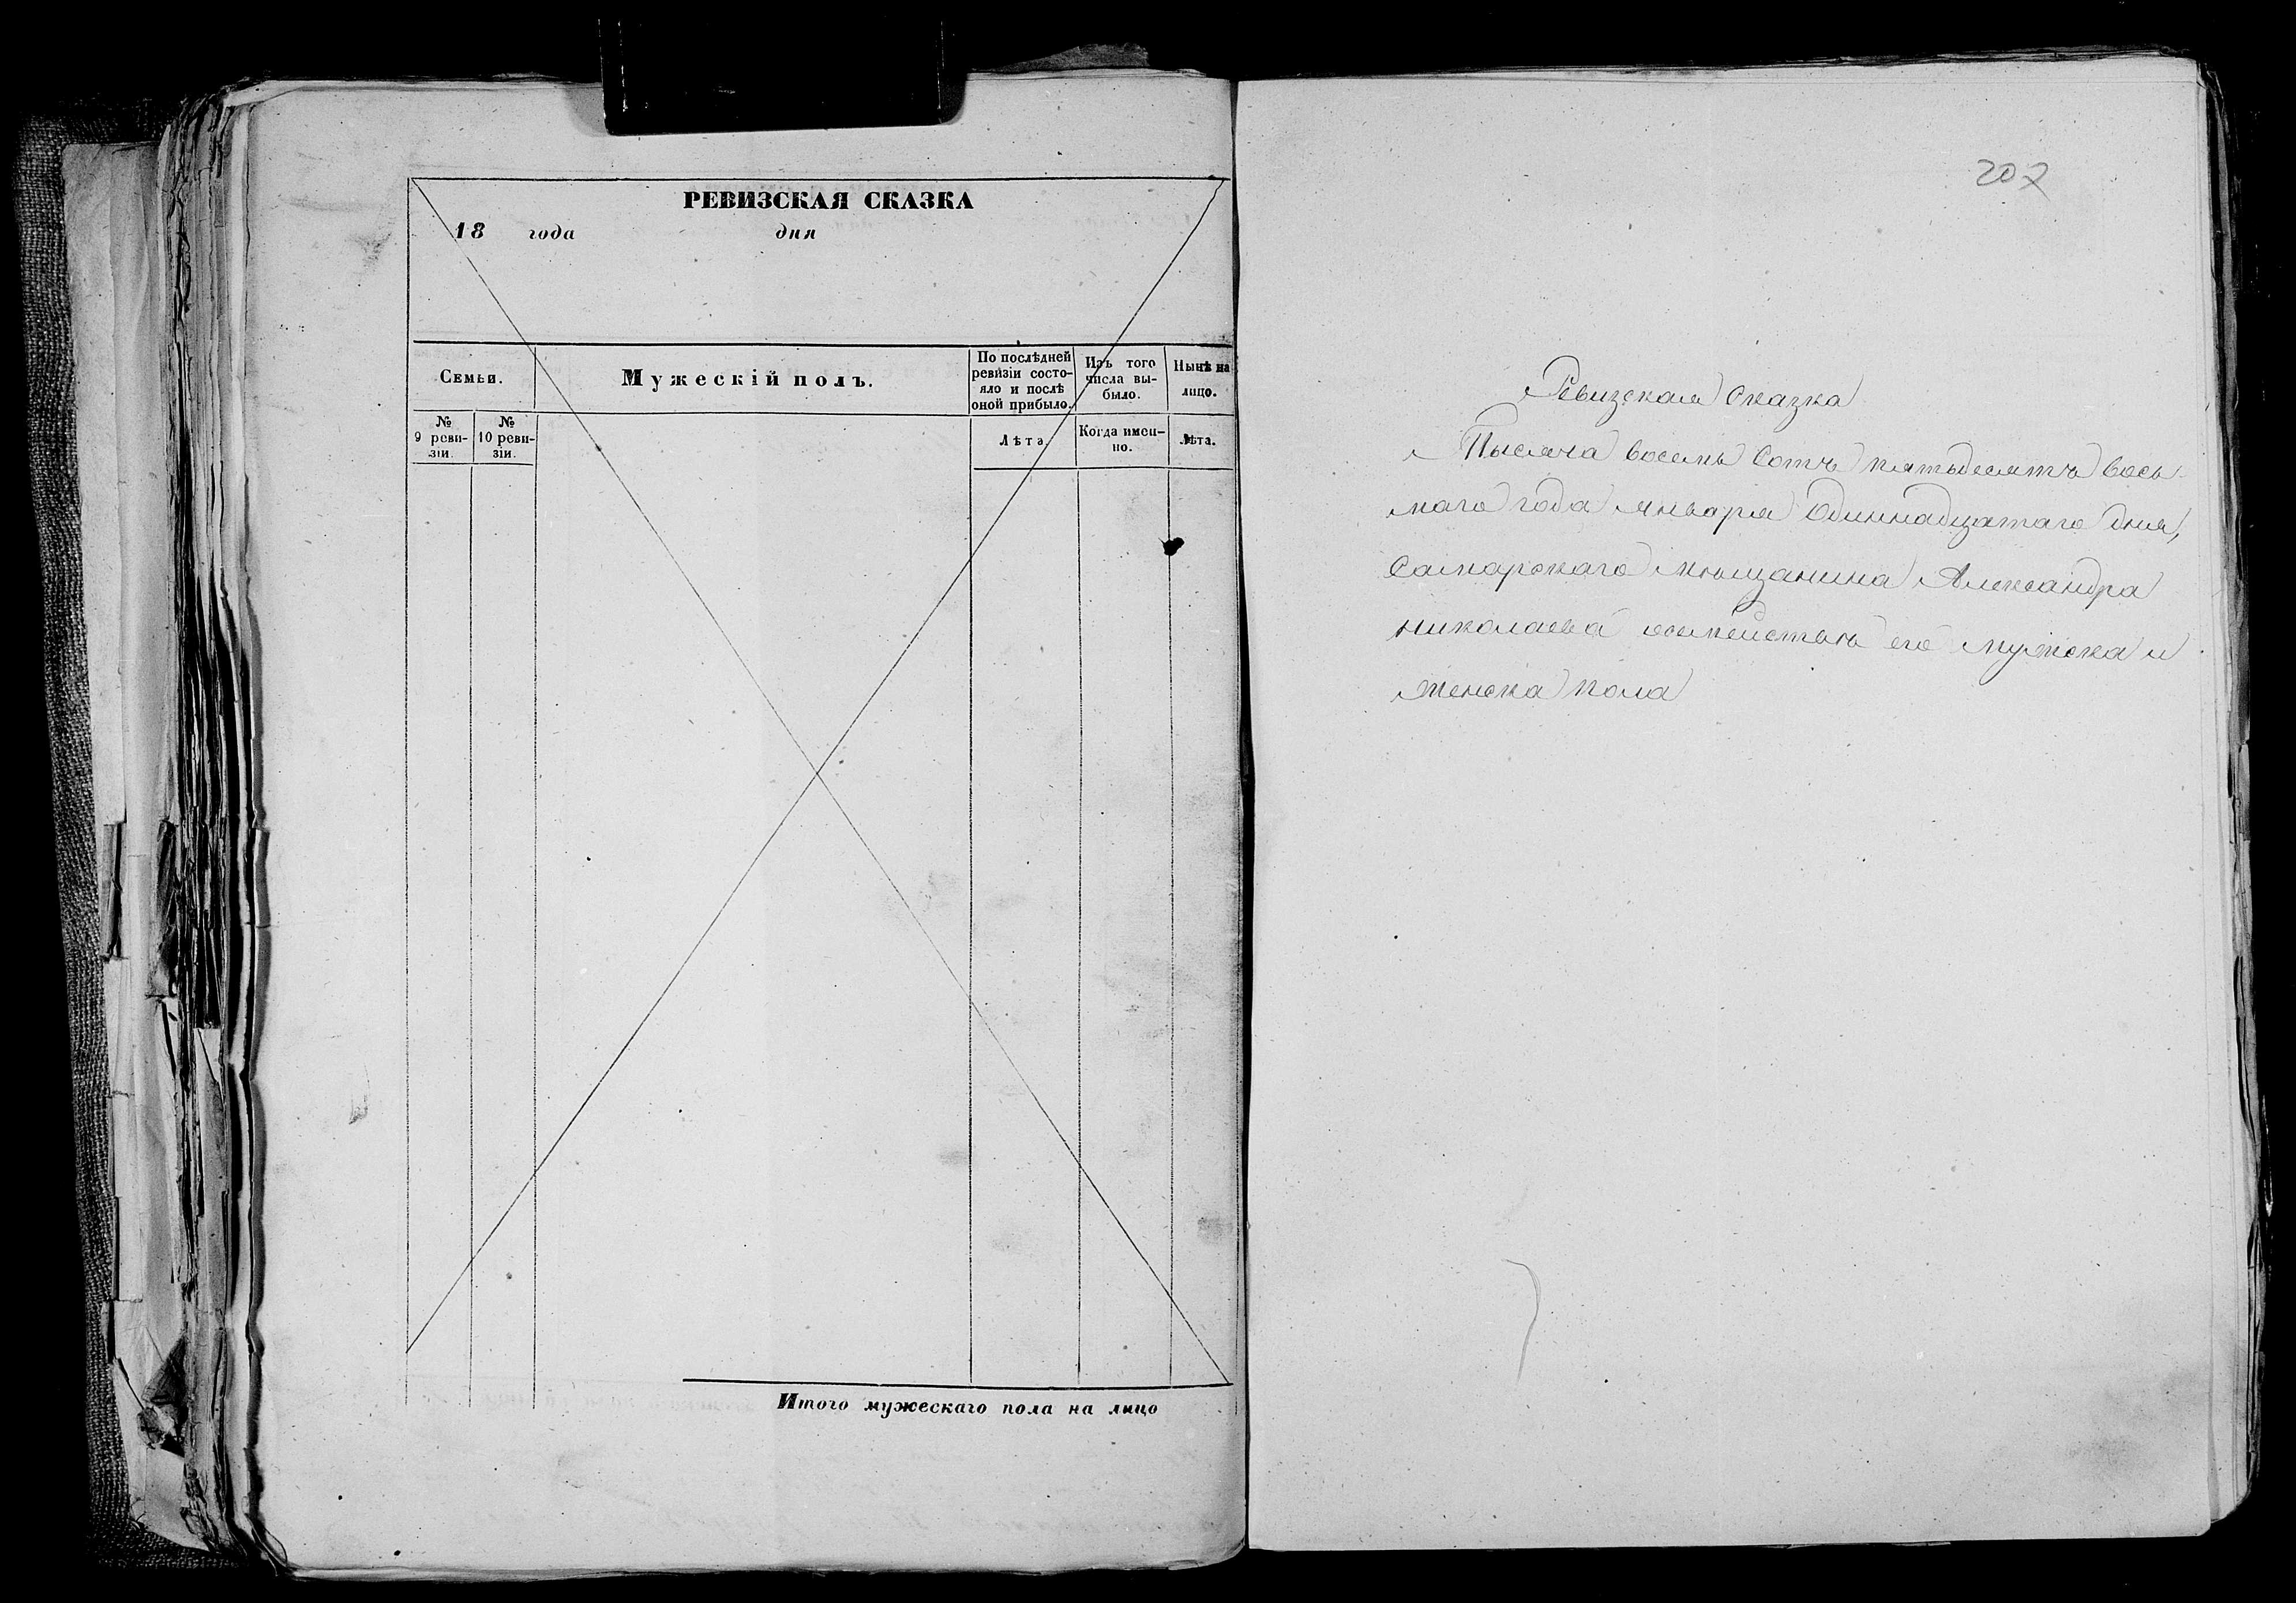 РЕВИЗСКАЯ СКАЗКА
18 года дня
Семьи.
Мужескій полъ.
По послѣдней
ревизіи состо-
яло и послѣ
оной прибыло.
Изъ того
числа вы-
было.
Нынѣ на
лицо.
№
9 реви-
зіи.
№
10 реви-
зіи.
Лѣта.
Когда имен-
но.
Лѣта.
Итого мужескаго пола на лицо
207
Ревизская сказка
Тысяча восемь сотъ пятьдесятъ вось-
маго года января одиннадцатаго дня,
Самарскаго мѣщанина Александра
николаева осемействѣ его мужска и
женска пола